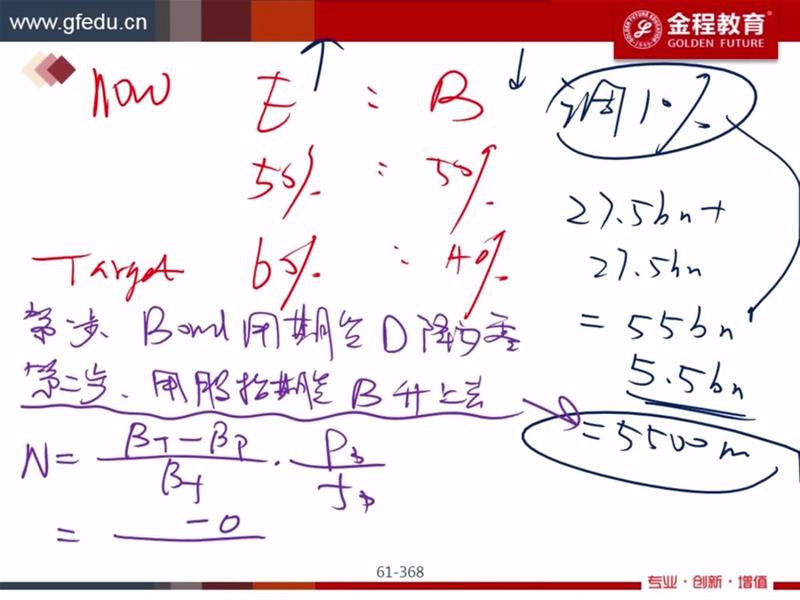 www.gfedu.cn
金程教育
GOLDEN FUTURE
Now E↑ : B↓
调10%
50% : 50%
27.5bn+
27.5bn
Target 60% : 40%
= 55bn
5.5bn
= 5500m
第一步、Bond用期货D降为零
第二步、用股指期货β升上去
N= (βT-βP)/βf · Ps/fp
= -0
61-368
专业·创新·增值